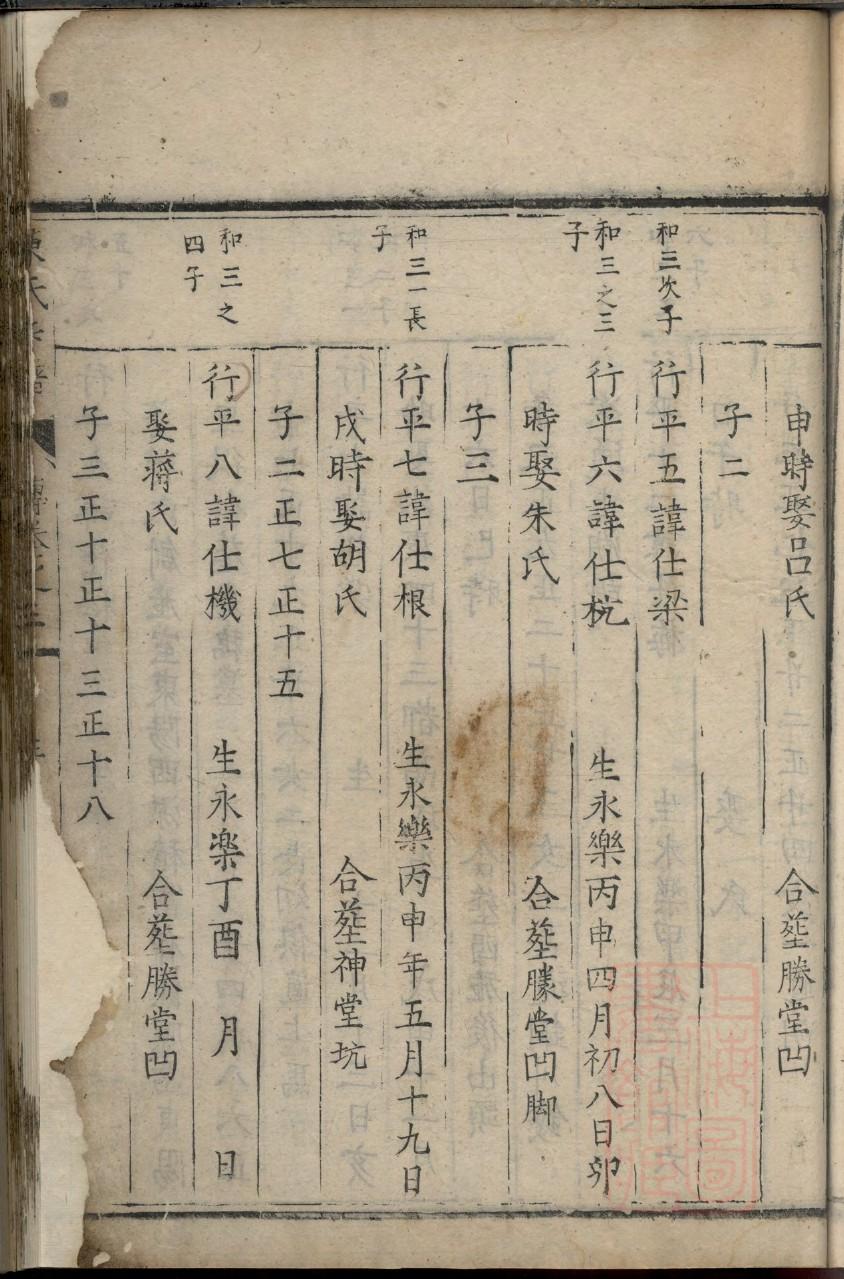 申時娶呂氏 合塟勝堂凹
子二
和三次子
行平五諱仕梁
和三之三子
行平六諱仕杭 生永樂丙申四月初八日夘
時娶朱氏 合塟勝堂凹脚
子三
和三一長子
行平七諱仕根 生永樂丙申年五月十九日
戌時娶胡氏 合塟神堂坑
子二正七正十五
和三之四子
行平八諱仕機 生永楽丁酉 月 日
娶蔣氏 合塟勝堂凹
子三正十正十三正十八